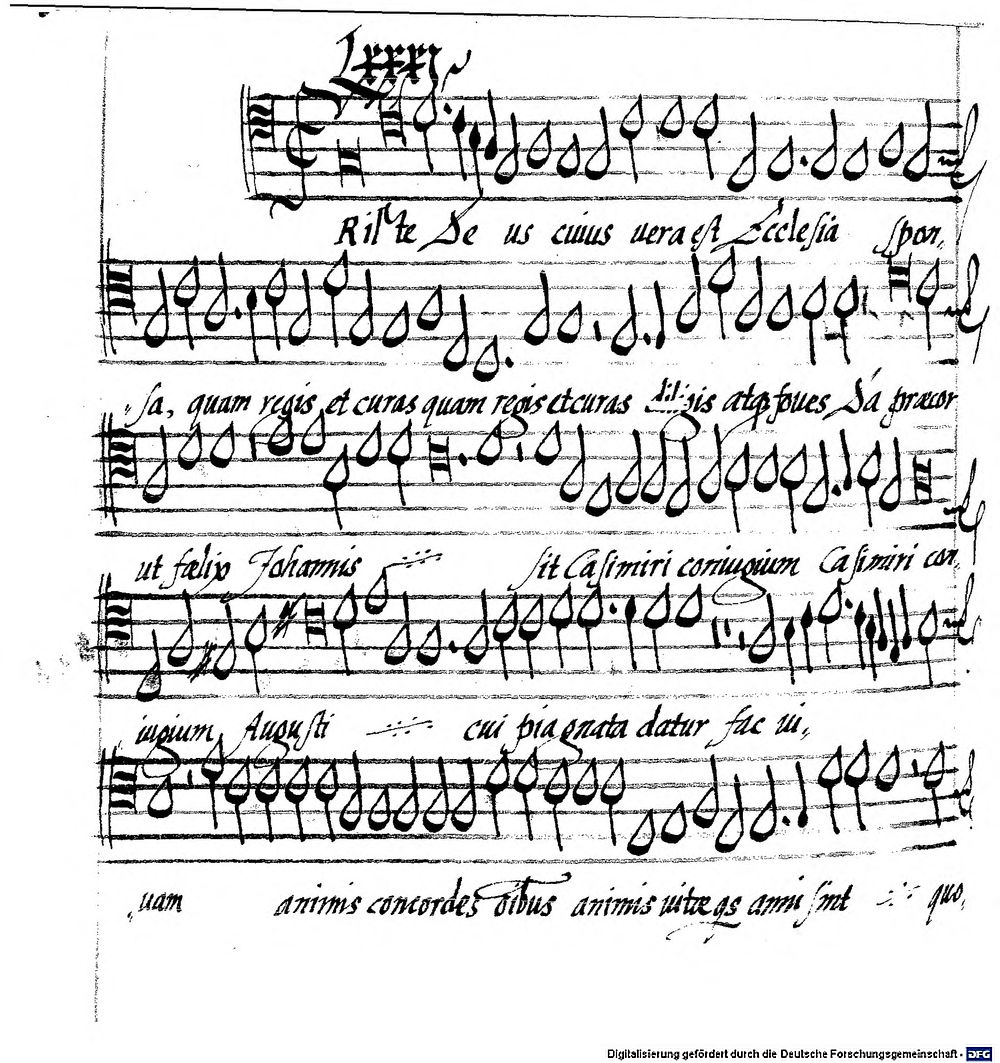 Lxxxj
Riste De us cuius uera est Ecclesia spon,,
,,sa, quam regis et curas quam regis et curas diligis atq foues Da præcor
ut fœlix Johannis sit Casimiri coniugium Casimiri con,,
iugium Augusti cui pia gnata datur fac ui,,
,,uam animis concordes oibus animis uitæ qs anni sint quo,,
Digitalisierung gefördert durch die Deutsche Forschungsgemeinschaft - DFG